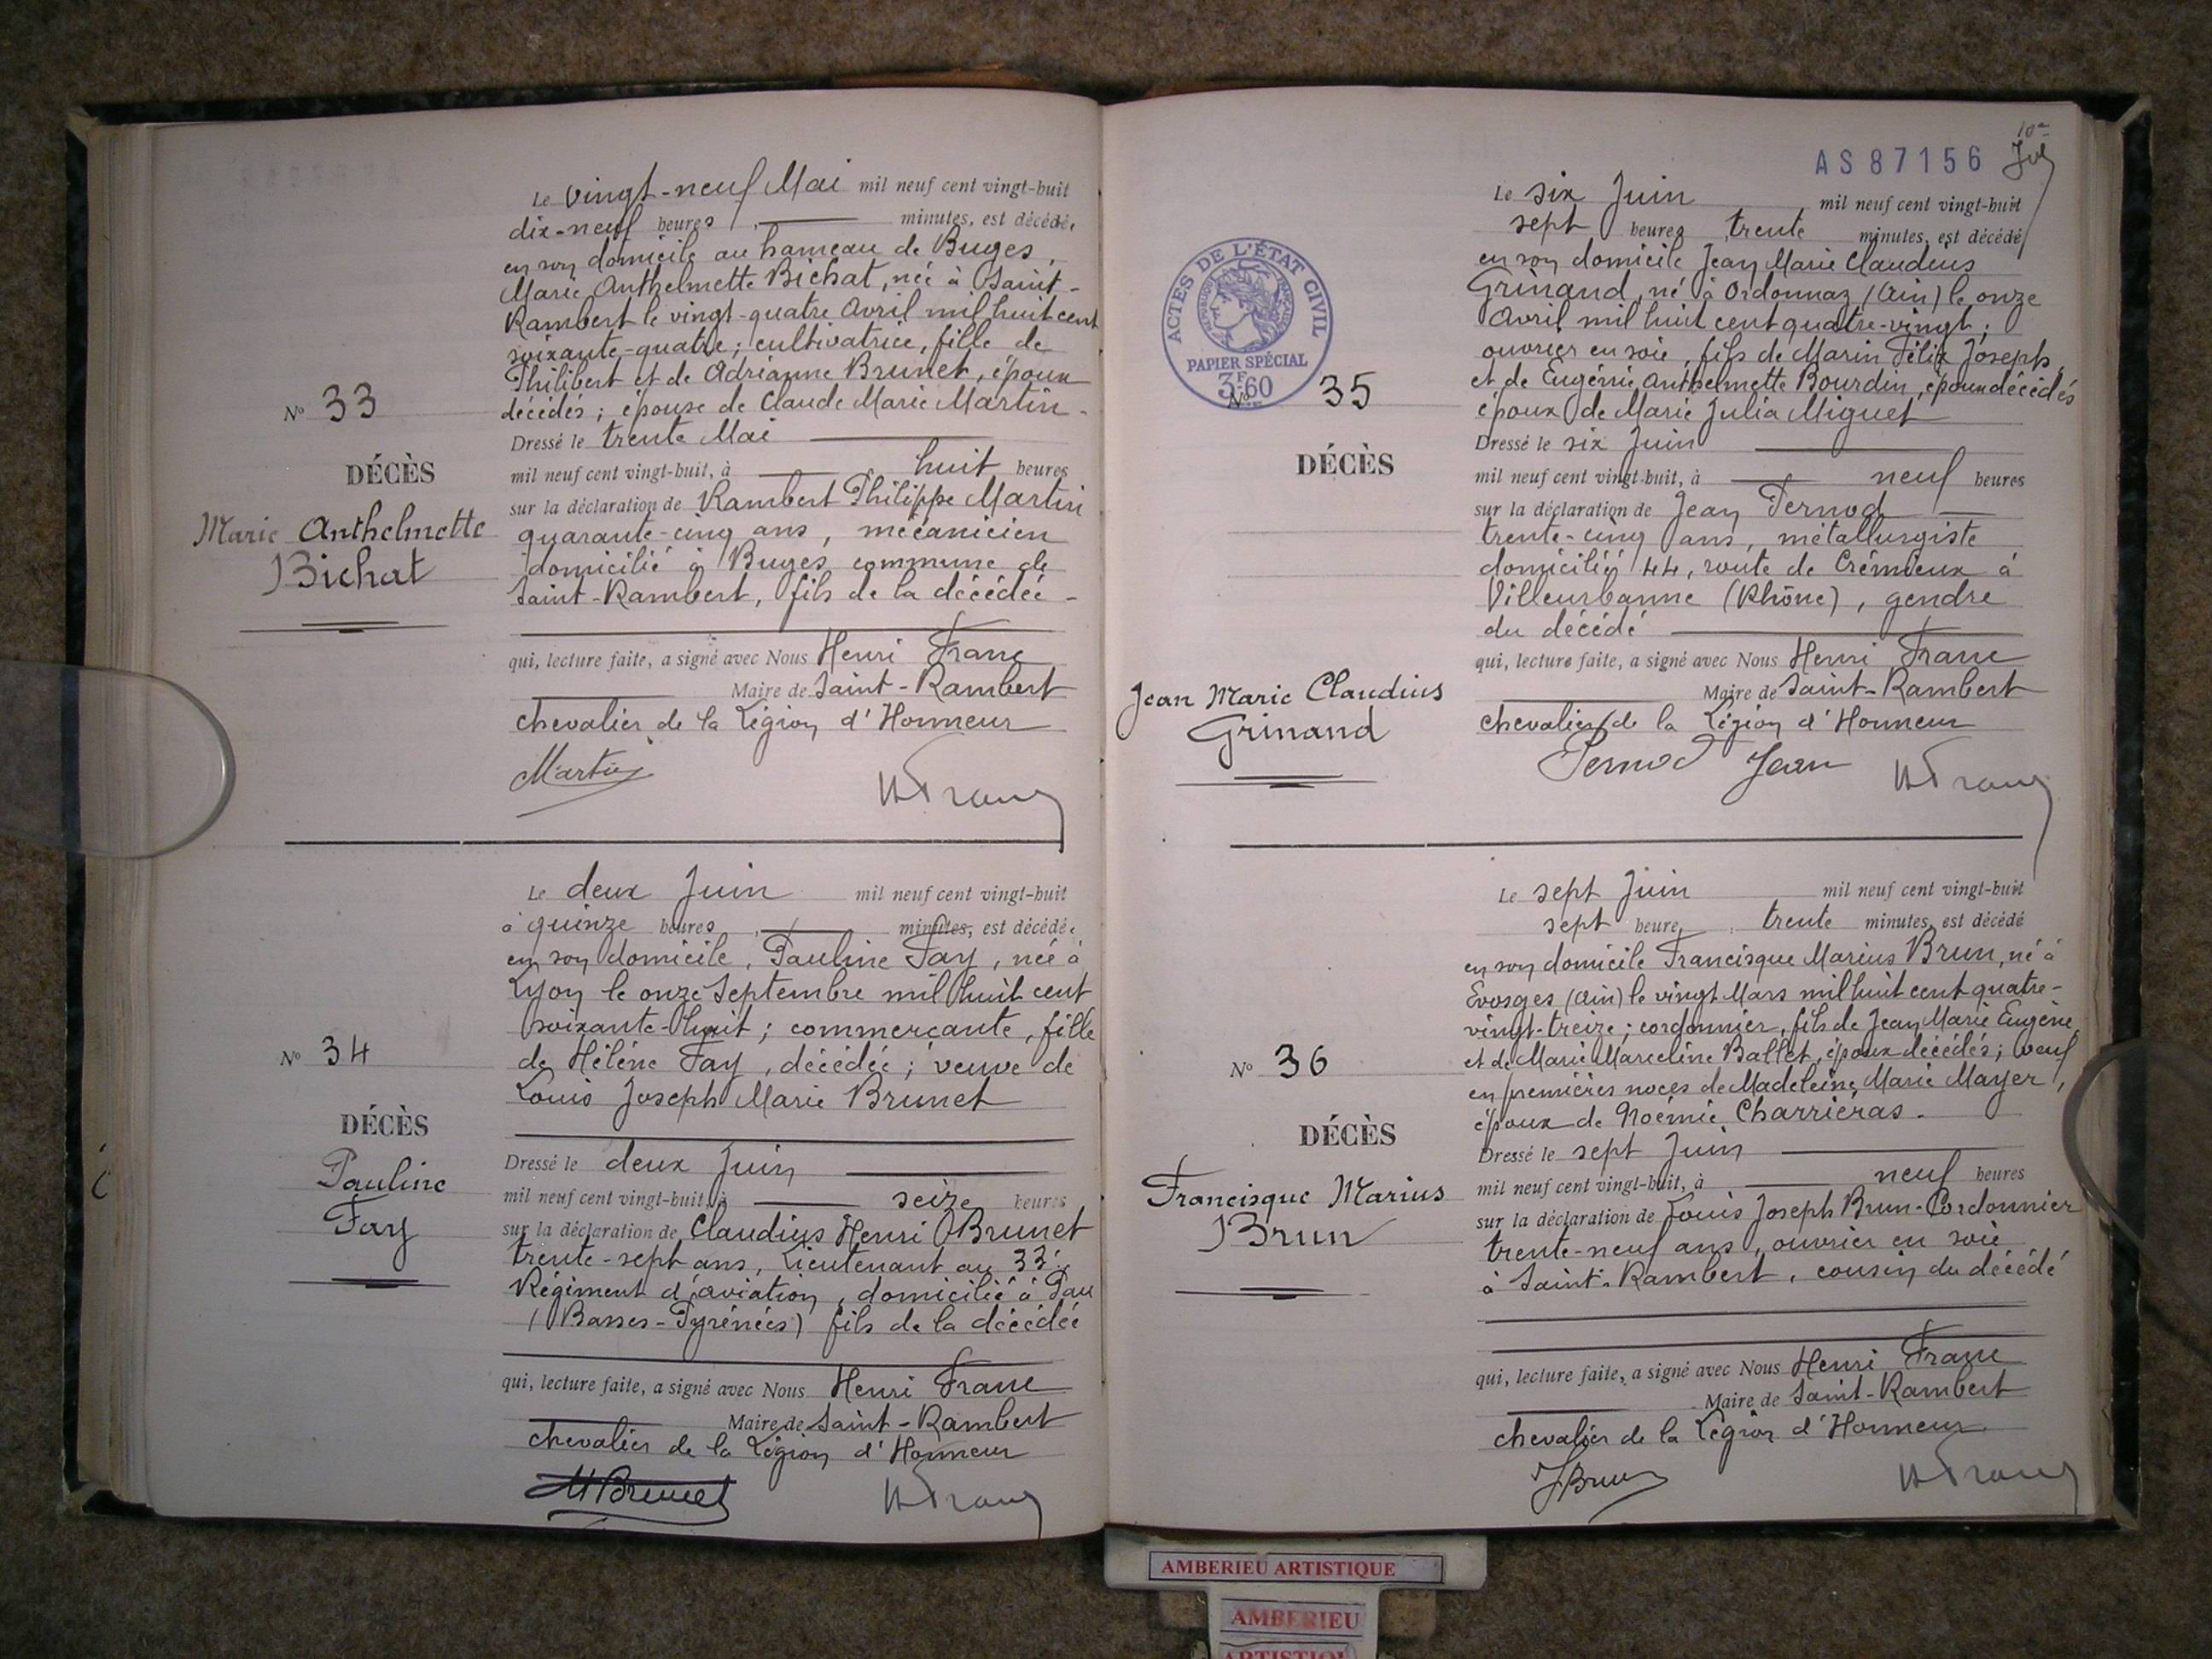 Le vingt-neuf Mai mil neuf cent vingt-huit
dix-neuf heures minutes, est décédée
en son domicile au hameau de Buges,
Marie Anthelmette Bichat, née à Saint-
Rambert le vingt-quatre Avril mil huit cent
soixante-quatre; cultivatrice, fille de
Philibert et de Adrianne Brunet, époux
décédés; épouse de Claude Marie Martin-
Nº 33
Dressé le trente Mai
DÉCÈS
mil neuf cent vingt-huit, à huit heures
sur la déclaration de Rambert Philippe Martin
Marie Anthelmette
Bichat
quarante-cinq ans, mécanicien
domicilié à Buges commune de
Saint-Rambert, fils de la décédée-
qui, lecture faite, a signé avec Nous Henri Franc
Maire de Saint-Rambert
chevalier de la Légion d'Honneur
Martin
H Franc
Le deux Juin mil neuf cent vingt-huit
à quinze heures minutes, est décédée
en son domicile, Pauline Fay, née à
Lyon le onze Septembre mil huit cent
soixante-huit; commerçante, fille
de Hélène Fay, décédée; veuve de
Louis Joseph Marie Brunet
Nº 34
DÉCÈS
Pauline
Fay
Dressé le deux Juin
mil neuf cent vingt-huit, à seize heures
sur la déclaration de Claudius Henri Brunet
trente-sept ans, Lieutenant au 33e
Régiment d'aviation, domicilié à Pau
(Basses-Pyrénées) fils de la décédée
qui, lecture faite, a signé avec Nous Henri Franc
Maire de Saint-Rambert
chevalier de la Légion d'Honneur
H Brunet
H Franc
AS 87156
Le six Juin mil neuf cent vingt-huit
sept heures trente minutes, est décédé
en son domicile Jean Marie Claudius
Grinand, né à Ordonnaz (Ain) le onze
Avril mil huit cent quatre-vingt;
ouvrier en soie, fils de Marin Félix Joseph
et de Eugénie Anthelmette Bourdin, époux décédés
époux de Marie Julia Miguet
ACTES DE L'ÉTAT CIVIL
RÉPUBLIQUE FRANÇAISE
PAPIER SPÉCIAL
3F.60
Nº 35
DÉCÈS
Jean Marie Claudius
Grinand
Dressé le six Juin
mil neuf cent vingt-huit, à neuf heures
sur la déclaration de Jean Pernod
trente-cinq ans, métallurgiste
domicilié 44, route de Crémieux à
Villeurbanne (Rhône), gendre
du décédé
qui, lecture faite, a signé avec Nous Henri Franc
Maire de Saint-Rambert
chevalier de la Légion d'Honneur
Pernod Jean
H Franc
Le sept Juin mil neuf cent vingt-huit
sept heure, trente minutes, est décédé
en son domicile Francisque Marius Brun, né à
Evosges (Ain) le vingt Mars mil huit cent quatre-
vingt-treize; cordonnier, fils de Jean Marie Eugène
et de Marie Marceline Ballet, époux décédés; veuf
en premières noces de Madeleine Marie Mayer,
époux de Noémie Charriéras.
Nº 36
DÉCÈS
Francisque Marius
Brun
Dressé le sept Juin
mil neuf cent vingt-huit, à neuf heures
sur la déclaration de Louis Joseph Brun-Cordonnier
trente-neuf ans, ouvrier en soie
à Saint-Rambert, cousin du décédé
qui, lecture faite, a signé avec Nous Henri Franc
Maire de Saint-Rambert
chevalier de la Légion d'Honneur
JBrun
H Franc
AMBERIEU ARTISTIQUE
AMBERIEU
ARTISTIQUE